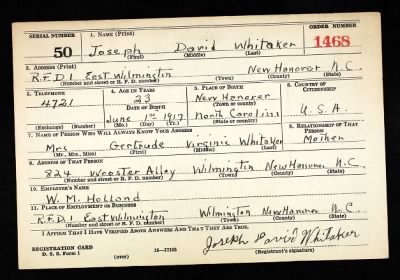 SERIAL NUMBER 1. NAME (Print) ORDER NUMBER
50 Joseph David Whitaker 1468
(First) (Middle) (Last)
2. ADDRESS (Print)
R.F.D. 1 East Wilmington New Hanover N.C.
(Number and street or R. F. D. number) (Town) (County) (State)
3. TELEPHONE 4. AGE IN YEARS 5. PLACE OF BIRTH 6. COUNTRY OF CITIZENSHIP
4721 23 New Hanover
DATE OF BIRTH (Town or county) U.S.A.
June 1st 1917 North Carolina
(Exchange) (Number) (Mo.) (Day) (Yr.) (State or country)
7. NAME OF PERSON WHO WILL ALWAYS KNOW YOUR ADDRESS 8. RELATIONSHIP OF THAT PERSON
Mrs Gertrude Virginia Whitaker Mother
(Mr., Mrs., Miss) (First) (Middle) (Last)
9. ADDRESS OF THAT PERSON
824 Wooster Alley Wilmington New Hanover N.C.
(Number and street or R. F. D. number) (Town) (County) (State)
10. EMPLOYER'S NAME
W. M. Holland
11. PLACE OF EMPLOYMENT OR BUSINESS
R.F.D. 1 East Wilmington Wilmington New Hanover N.C.
(Number and street or R. F. D. number) (Town) (County) (State)
I AFFIRM THAT I HAVE VERIFIED ABOVE ANSWERS AND THAT THEY ARE TRUE.
REGISTRATION CARD Joseph David Whitaker
D. S. S. Form 1 (over) 16—17105 (Registrant's signature)